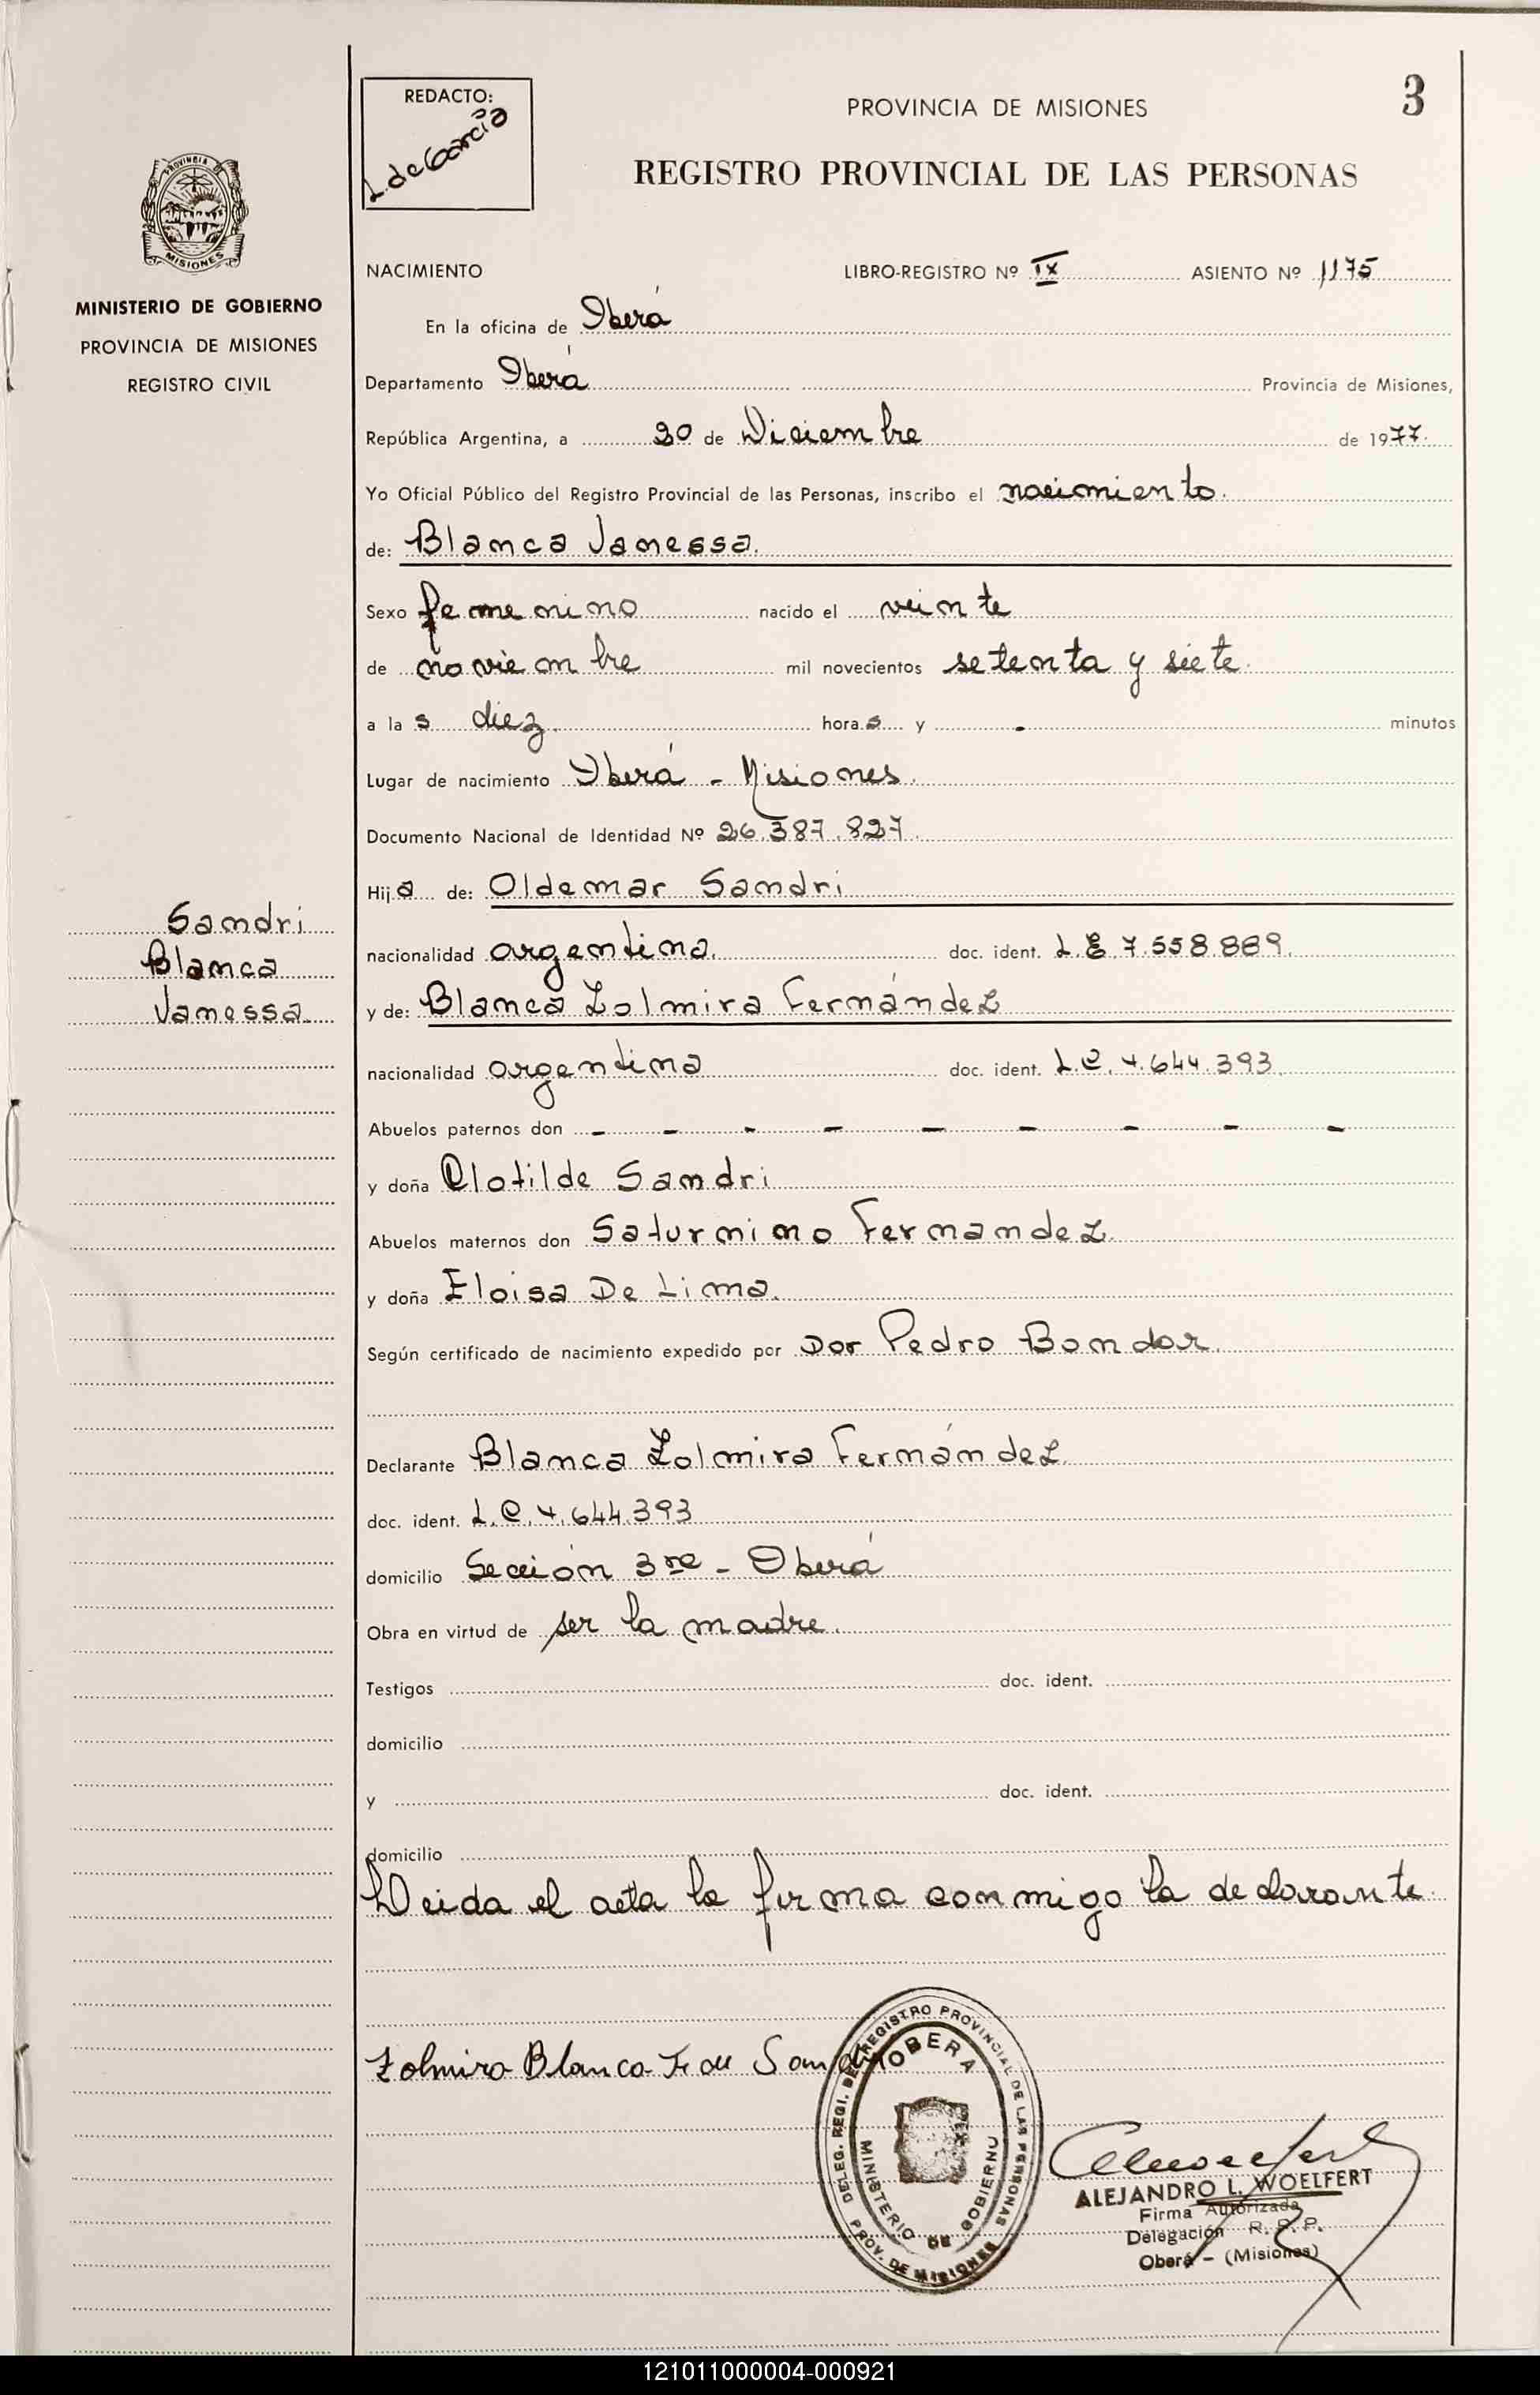 REDACTO:
L. de García
PROVINCIA DE MISIONES
3
REGISTRO PROVINCIAL DE LAS PERSONAS
PROVINCIA
MISIONES
MINISTERIO DE GOBIERNO
PROVINCIA DE MISIONES
REGISTRO CIVIL
NACIMIENTO LIBRO-REGISTRO Nº IX ASIENTO Nº 1175
En la oficina de Oberá
Departamento Oberá Provincia de Misiones,
República Argentina, a 20 de Diciembre de 1977.
Yo Oficial Público del Registro Provincial de las Personas, inscribo el nacimiento.
de: Blanca Vanessa.
Sexo femenino nacido el veinte
de noviembre mil novecientos setenta y siete.
a las diez. horas y - minutos
Lugar de nacimiento Oberá - Misiones.
Documento Nacional de Identidad Nº 26.387.827.
Hija de: Oldemar Sandri
Sandri
Blanca
Vanessa.
nacionalidad argentina. doc. ident. L.E 7.558.889.
y de: Blanca Zolmira Fernández
nacionalidad argentina doc. ident. L.C. 4.644.393.
Abuelos paternos don - - - - - - - - -
y doña Clotilde Sandri
Abuelos maternos don Saturnino Fernandez.
y doña Eloisa De Lima.
Según certificado de nacimiento expedido por Dor Pedro Bondar.
Declarante Blanca Zolmira Fernández.
doc. ident. L.C. 4.644.393
domicilio Sección 3ra - Oberá
Obra en virtud de ser la madre.
Testigos doc. ident.
domicilio
y doc. ident.
domicilio
Leida el acta la firma conmigo la declarante.
Zolmira Blanca F. de Sandri
DELEG. REGI. DEL REGISTRO PROVINCIAL DE LAS PERSONAS
OBERA
MINISTERIO DE GOBIERNO
PROV. DE MISIONES
ALEJANDRO L. WOELFERT
Firma Autorizada
Delegación R. P. P.
Oberá - (Misiones)
121011000004-000921